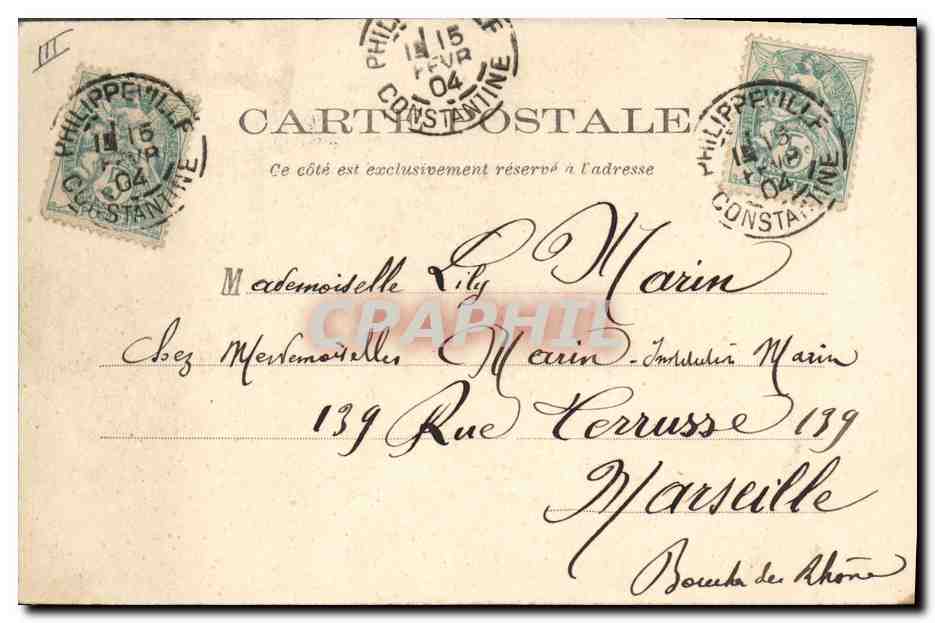 III
PHILIPPEVILLE
15
FEVR
04
CONSTANTINE
PHILIPPEVILLE
15
FEVR
04
CONSTANTINE
PHILIPPEVILLE
15
04
CONSTANTINE
CARTE POSTALE
Ce côté est exclusivement réservé à l'adresse
Mademoiselle Lily Marin
CPRAPHIL
Chez Mesdemoiselles Marin - Institution Marin
139 Rue Terrusse 139
Marseille
Bouches du Rhône